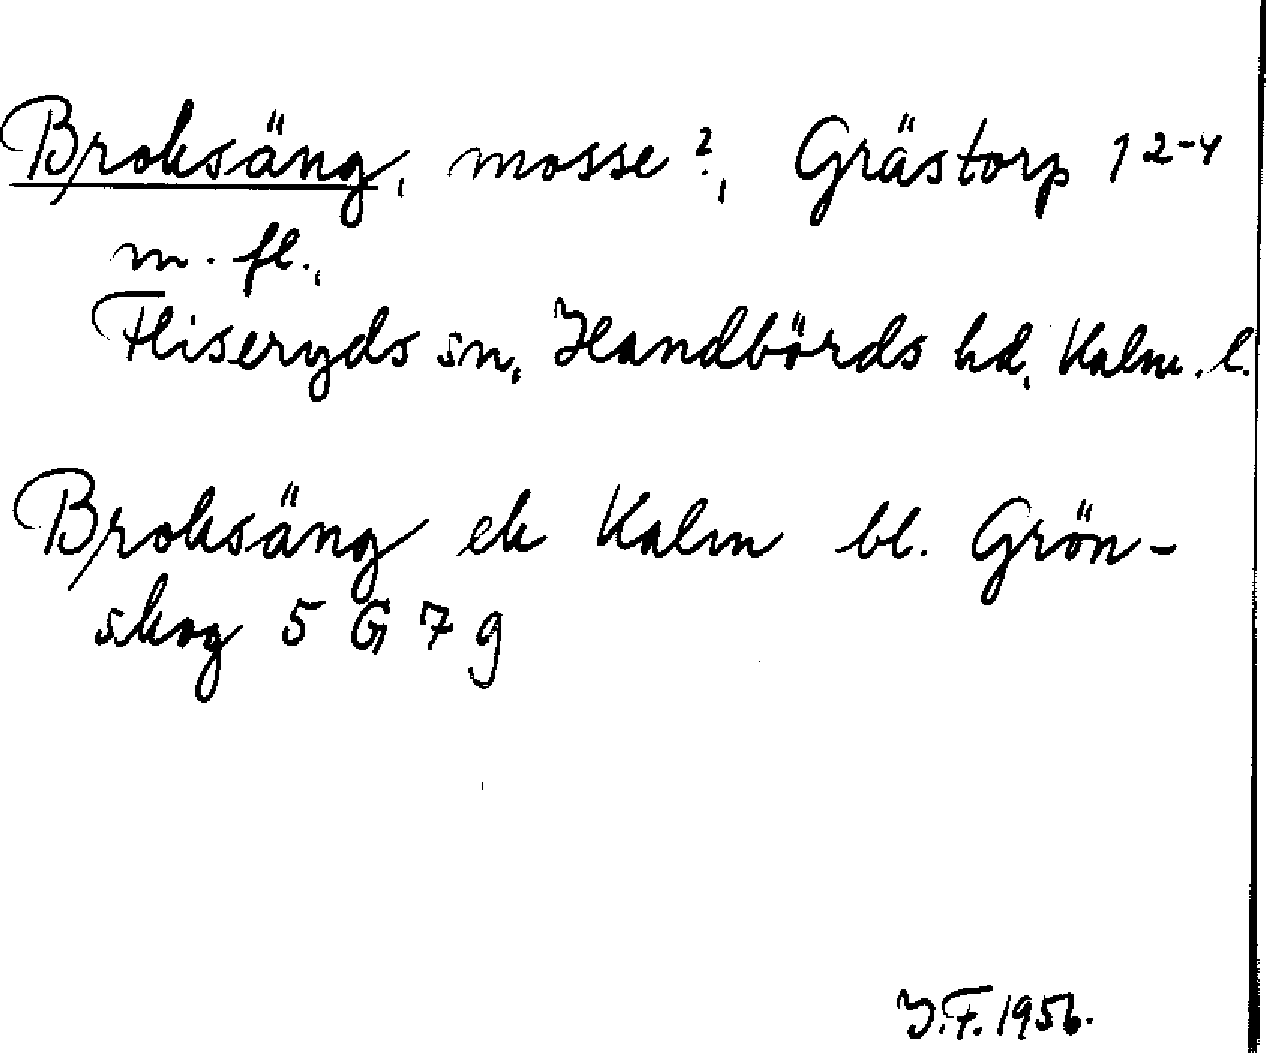 Broksäng, mosse?, Grästorp 1²⁻⁴
m. fl.,
Fliseryds sn, Handbörds hd, Kalm. l.
Broksäng ek Kalm bl. Grön-
skog 5 G 7 g
I.F. 1956.